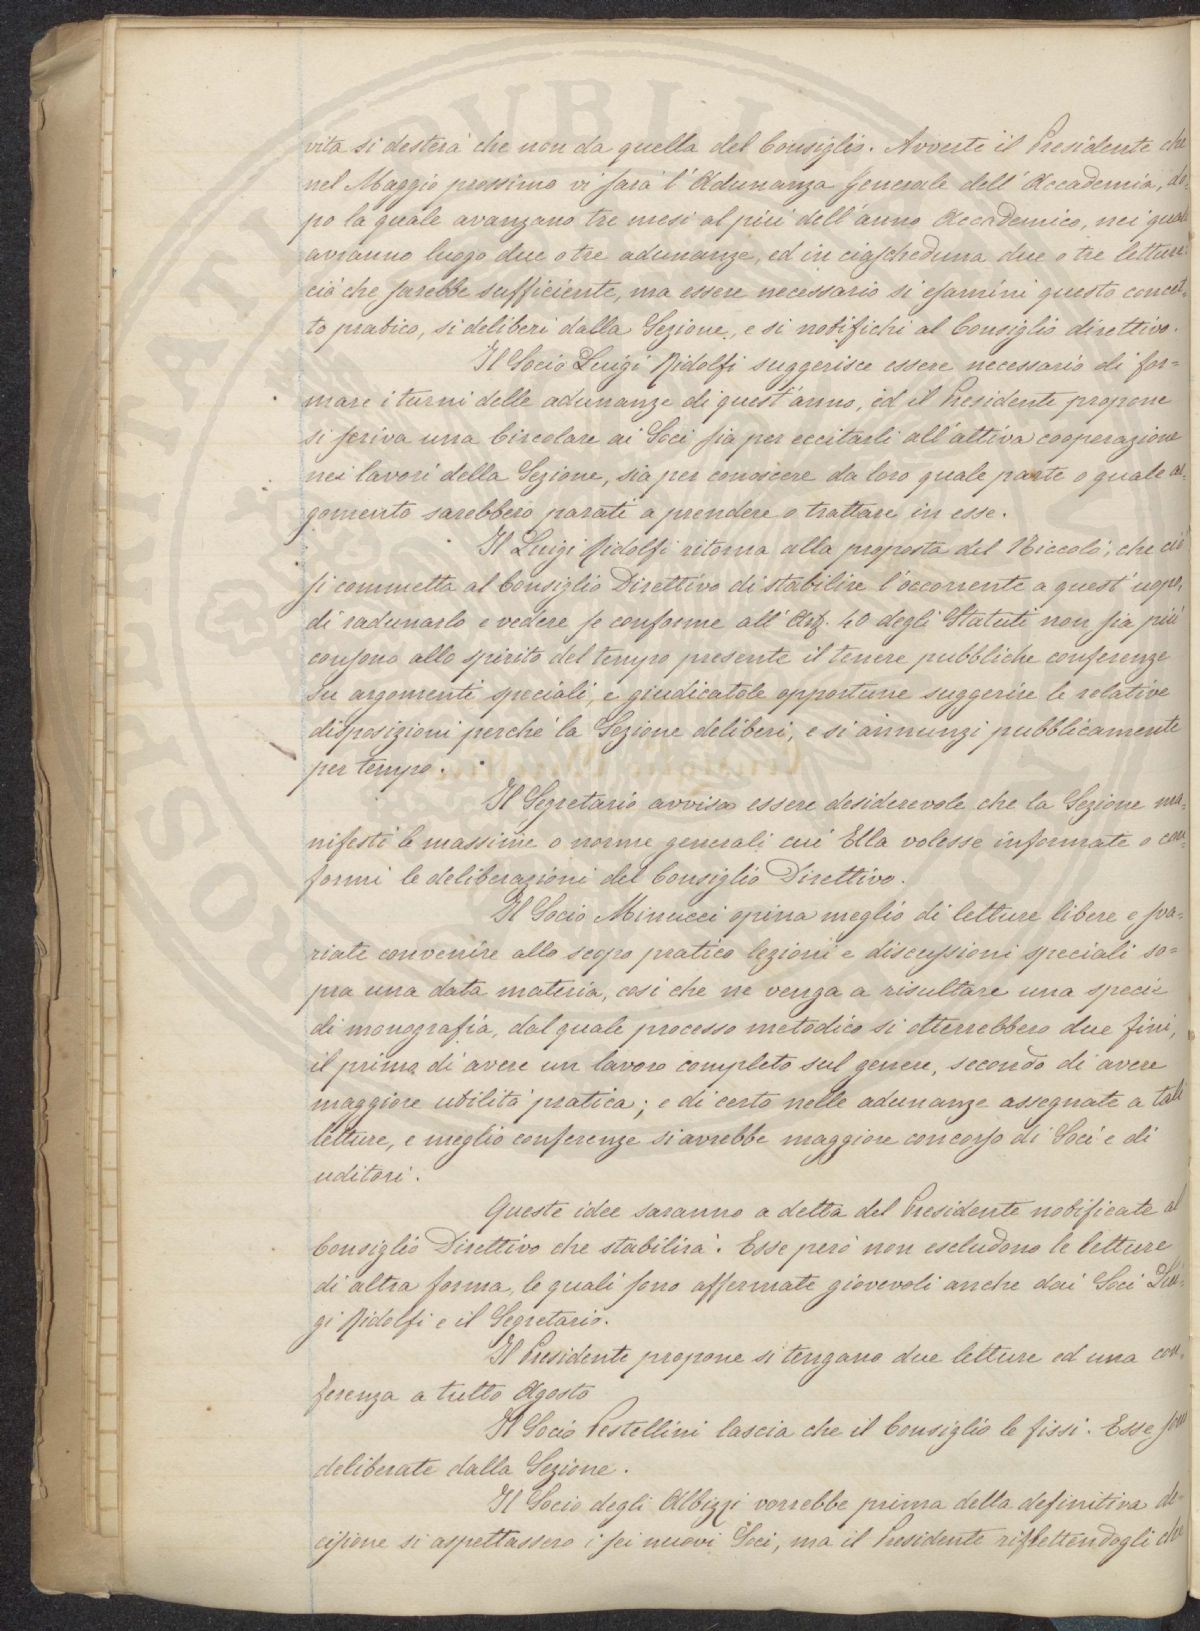 vita si desterà che non da quella del Consiglio. Avverte il Presidente che
nel Maggio prossimo vi sarà l'Adunanza Generale dell'Accademia, do-
po la quale avanzano tre mesi al più dell'anno Accademico, nei quali
avranno luogo due o tre adunanze, ed in ciascheduna due o tre letture
ciò che sarebbe sufficiente, ma essere necessario si esamini questo concet-
to pratico, si deliberi dalla Sezione, e si notifichi al Consiglio direttivo.
Il Socio Luigi Ridolfi suggerisce essere necessario di for=
mare i turni delle adunanze di quest'anno, ed il Presidente propone
si scriva una Circolare ai Soci sia per eccitarli all'attiva cooperazione
nei lavori della Sezione, sia per conoscere da loro quale parte o quale ar-
gomento sarebbero parati a prendere o trattare in esse.
Il Luigi Ridolfi ritorna alla proposta del Niccolò, che ciò
si commetta al Consiglio Direttivo di stabilire l'occorrente a quest'uopo,
di radunarlo e vedere se conforme all'Art. 40 degli Statuti non sia più
consono allo spirito del tempo presente il tenere pubbliche conferenze
su argomenti speciali, e giudicatole opportune suggerire le relative
disposizioni perché la Sezione deliberi, e si annunzi pubblicamente
per tempo.
Il Segretario avvisa essere desiderevole che la Sezione ma=
nifesti le massime o norme generali cui Ella volesse informate o con-
formi le deliberazioni del Consiglio Direttivo.
Il Socio Minucci opina meglio di letture libere e sva=
riate convenire allo scopo pratico lezioni e discussioni speciali so=
pra una data materia, così che ne venga a risultare una specie
di monografia, dal quale processo metodico si otterrebbero due fini,
il primo di avere un lavoro completo sul genere, secondo di avere
maggiore utilità pratica; e di certo nelle adunanze assegnate a tali
letture, e meglio conferenze si avrebbe maggiore concorso di Soci e di
uditori.
Queste idee saranno a detta del Presidente notificate al
Consiglio Direttivo che stabilirà. Esse però non escludono le letture
di altra forma, le quali sono affermate giovevoli anche dai Soci Lui-
gi Ridolfi e il Segretario.
Il Presidente propone si tengano due letture ed una con-
ferenza a tutto Agosto
Il Socio Pestellini lascia che il Consiglio le fissi. Esse son
deliberate dalla Sezione.
Il Socio degli Albizzi vorrebbe prima della definitiva de-
cisione si aspettassero i sei nuovi Soci, ma il Presidente riflettendogli che